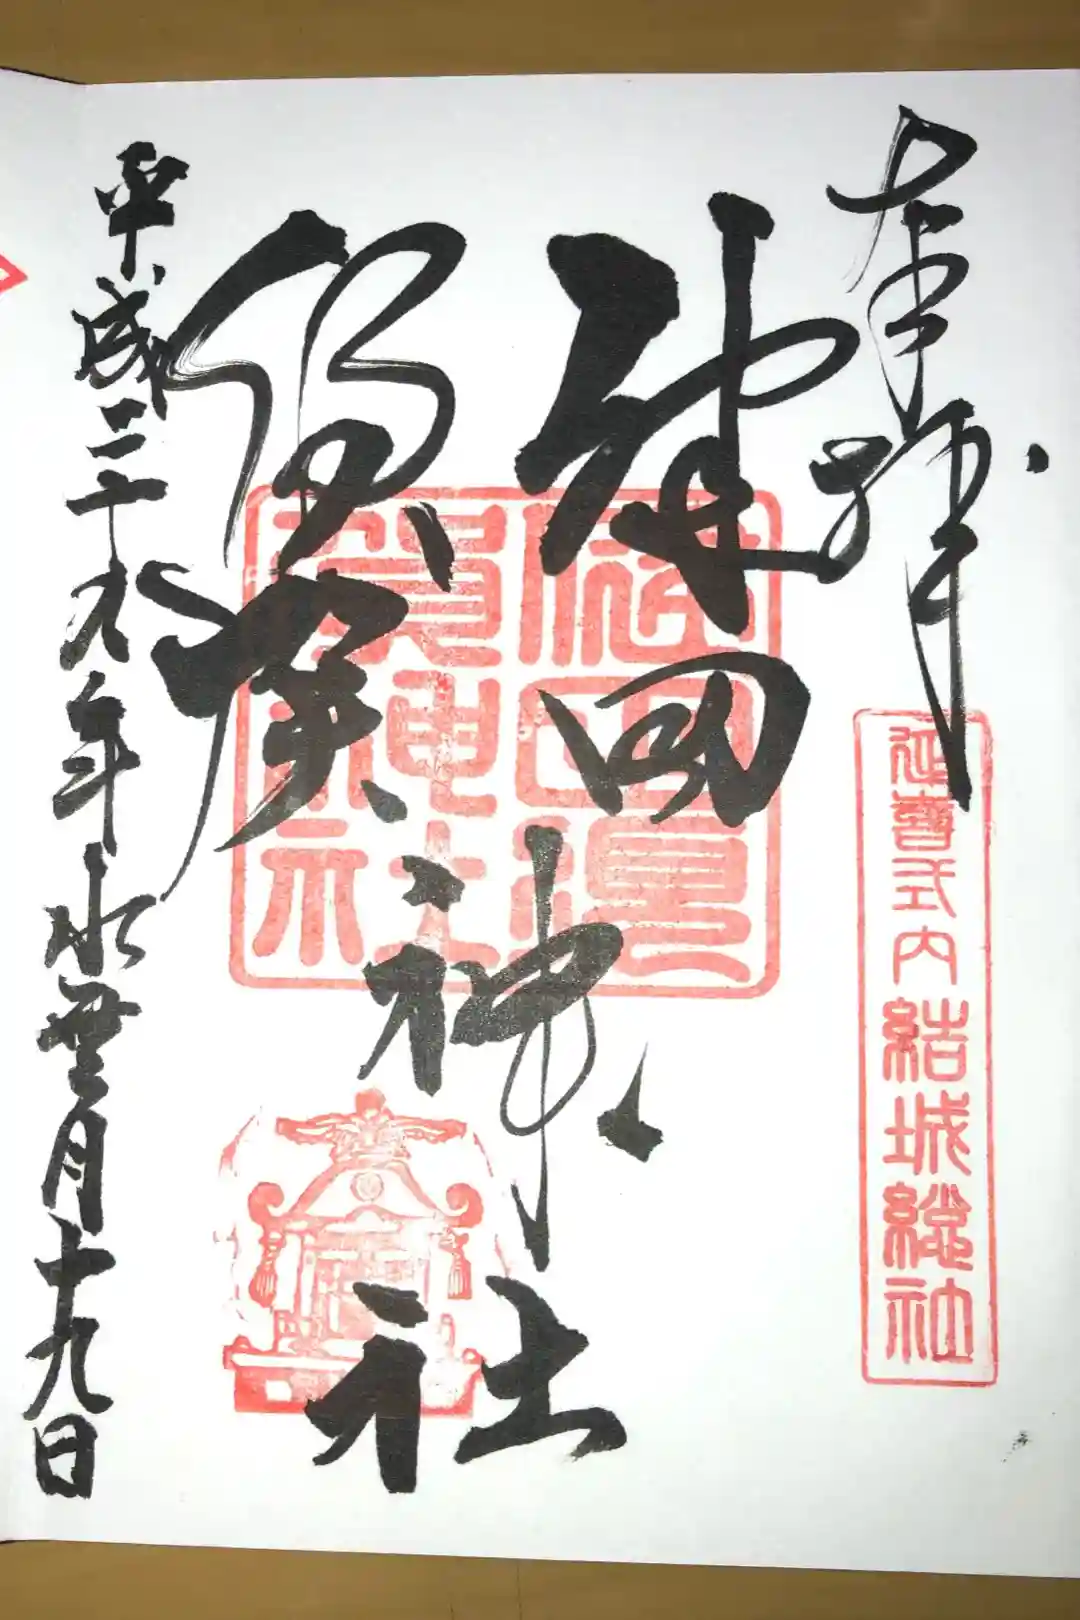 奉拝
延喜式内結城総社
健田
須賀
神社
健田須
賀神社
平成二十九年水無月十九日